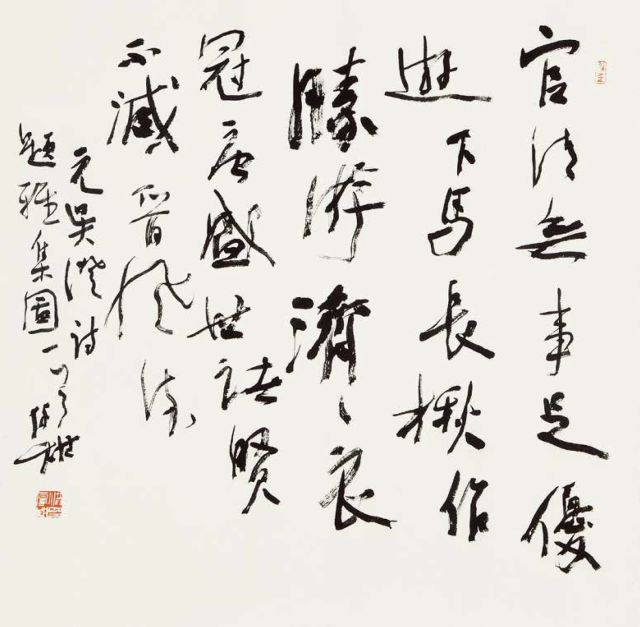 官清無事足優
遊下馬長楸作
勝游濟〻衣
冠唐盛世諸賢
不減晉風流
元吳澄詩
題雅集圖一首